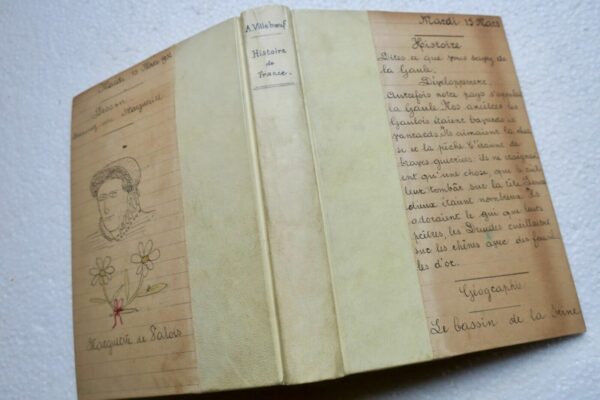 Mardi 15 Mars
Dessin
Marguerite de Valois
A. Villebœuf
Histoire
de
France.
Mardi 15 Mars
Histoire
Dites ce que vous savez de
la Gaule.
Développement:
Autrefois notre pays s'appelait
la Gaule. Nos ancêtres les
Gaulois étaient bavards et
vantards. Ils aimaient la chas
se et la pêche. C'étaient de
braves guerriers: ils ne craignai
ent qu'une chose, que le ciel
leur tombât sur la tête. Leurs
dieux étaient nombreux. Ils
adoraient le gui que leurs
prêtres, les Druides cueillaient
sur les chênes avec des faucil
les d'or.
Géographie
Le bassin de la Seine